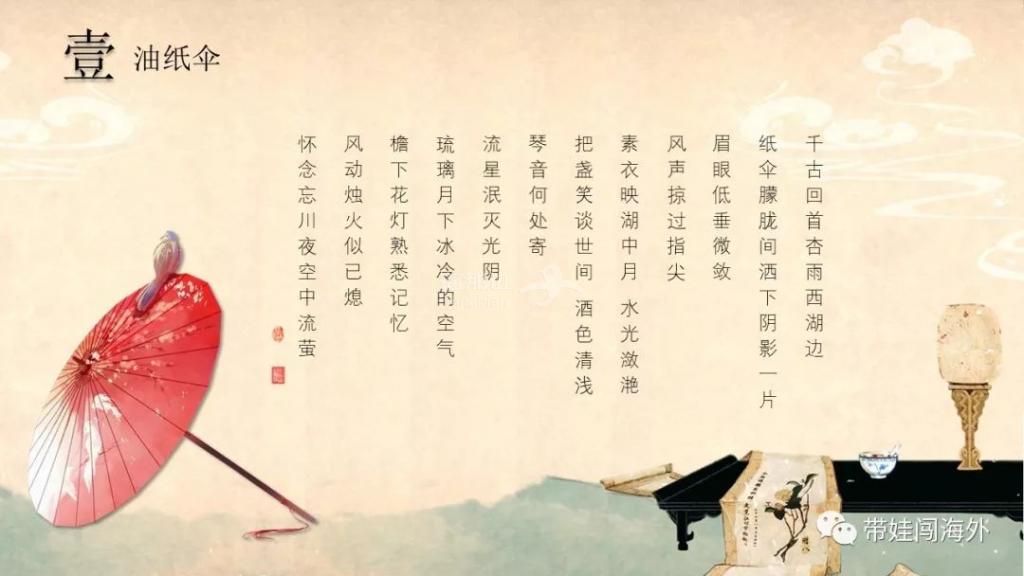 壹 油纸伞
千古回首杏雨西湖边
纸伞朦胧间洒下阴影一片
眉眼低垂微敛
风声掠过指尖
素衣映湖中月 水光潋滟
把盏笑谈世间 酒色清浅
琴音何处寄
流星泯灭光阴
琉璃月下冰冷的空气
檐下花灯熟悉记忆
风动烛火似已熄
怀念忘川夜空中流萤
带娃闯海外